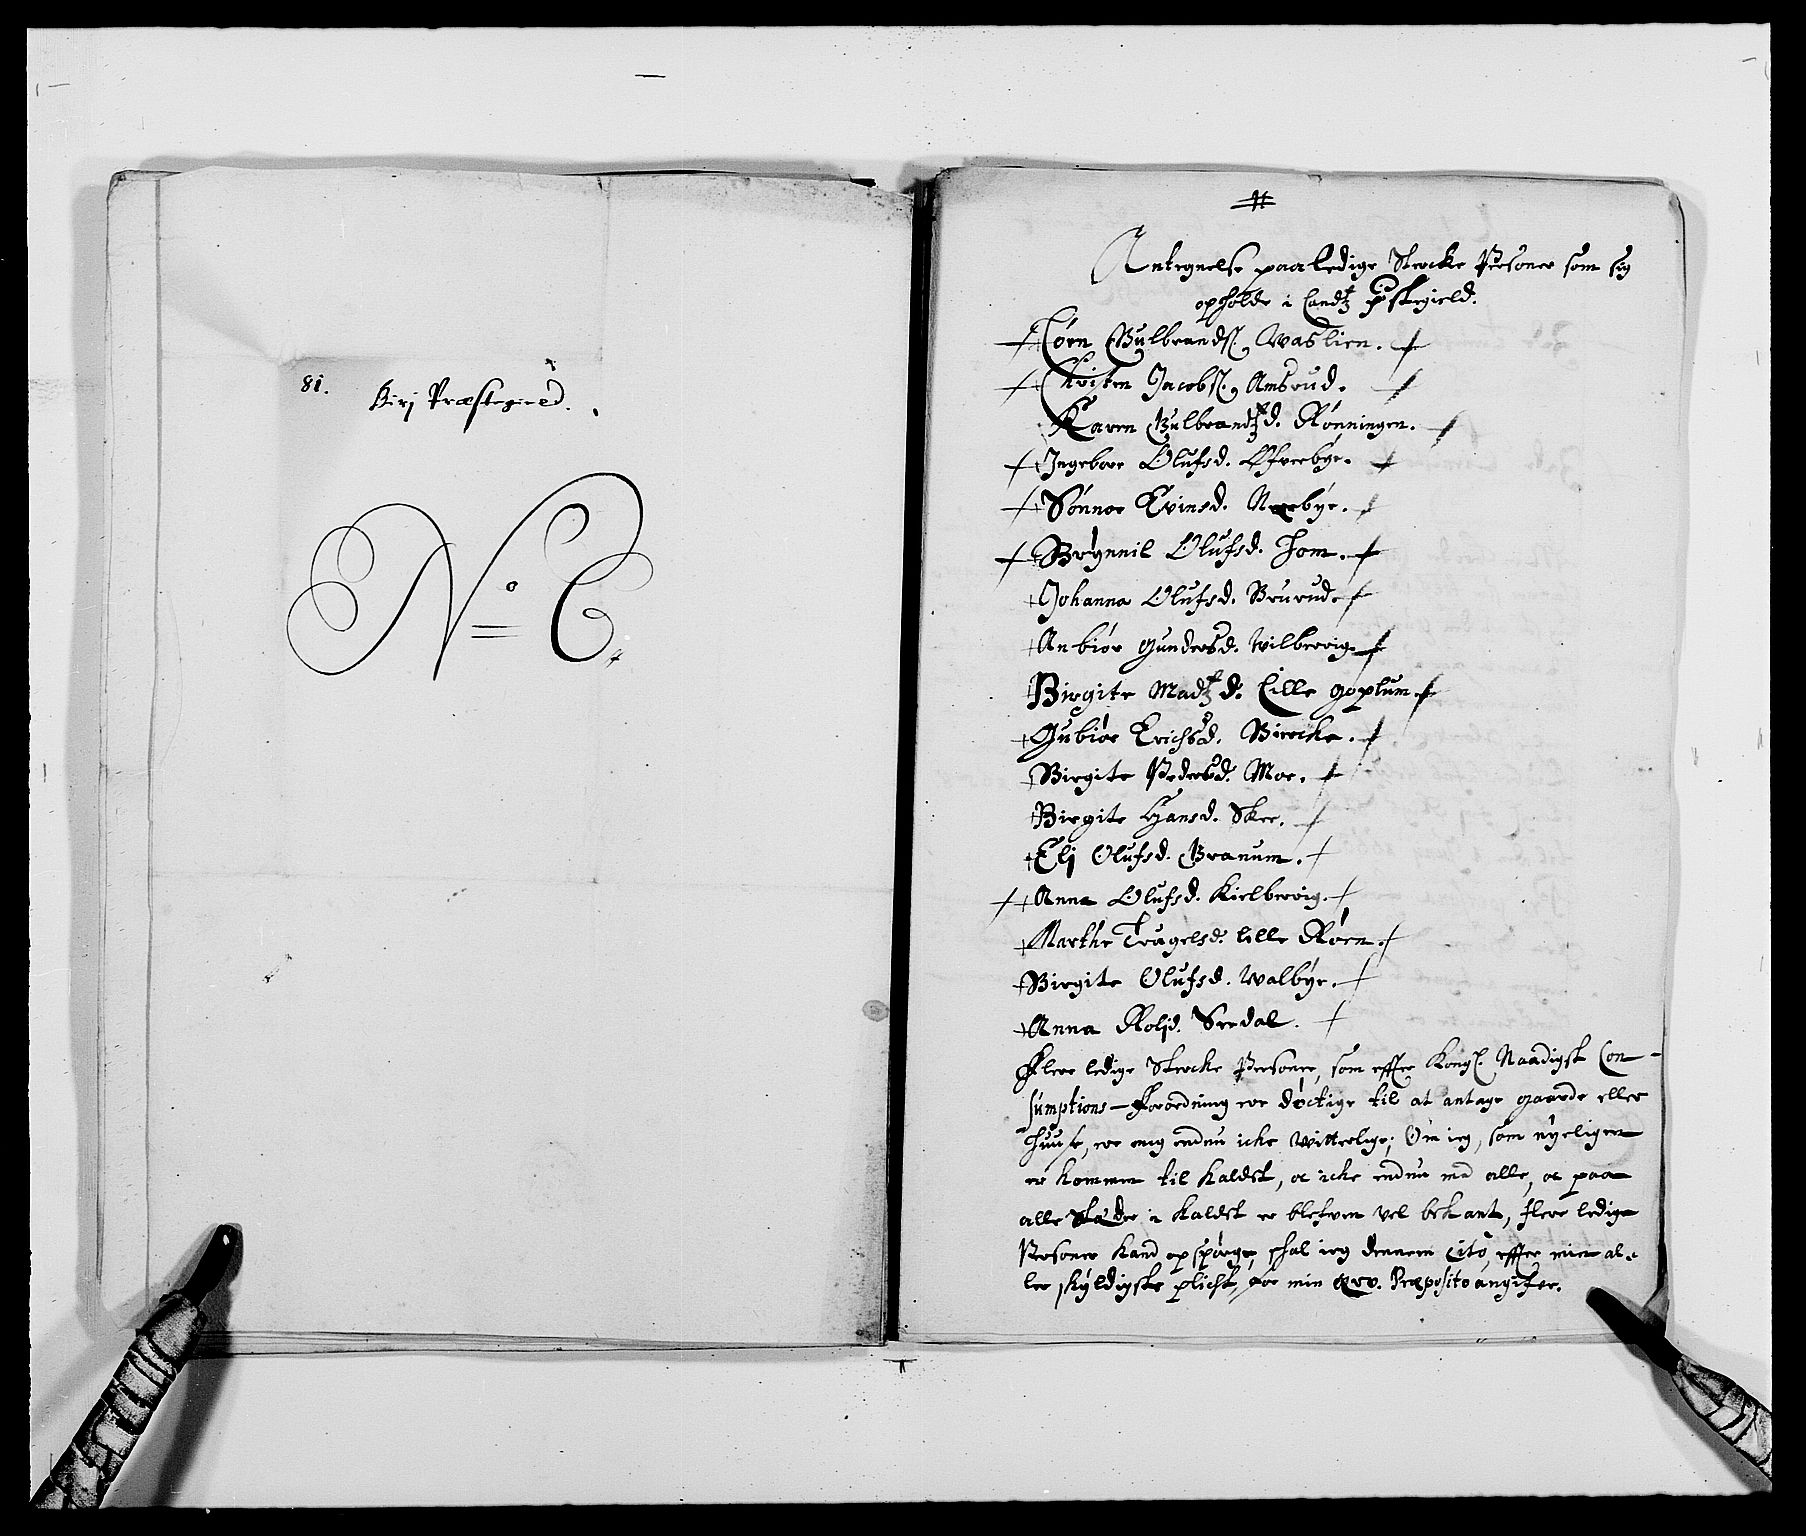 81.
Birj Præstegield.
No C.
Antegnelse paa ledige Stercke Personer som sig
opholde i Landtz Pstegield.
Jørn Gulbrands. Waslien.
Christen Jacobs. Amsrud.
Karen Gulbrandtzd. Rønningen.
Ingebor Olufsd. Øfverbye.
Sønnor Evinsd. Neerbye.
Brynnil Olufsd. Hom.
Johanna Olufsd. Brurud.
Anbiør Gundersd. Wilbervig.
Birgite Madtzd. Lille Goplum.
Gubiør Erichsd. Bircke.
Birgite Pedersd. Moe.
Birgite Hansd. Skee.
Elj Olufsd. Granum.
Anna Olufsd. Kielbervig.
Marthe Trugelsd. lille Røen.
Birgite Olufsd. Walbye.
Anna Rolfsd. Sredal.
Flere ledige Stercke Personer, som effter Kongl. Naadigst Con-
sumptions-Forordning ere døctige til at antage gaarde eller
Huuse, ere mig endnu icke witterlige; Om ieg, som nyeligen
er kommen til Kaldet, oc icke endnu med alle, oc paa
alle Stæder i Kaldet er blefven vel bekant, flere ledige
Personer kand opspørge, skal ieg dennem cito, effter min al-
ler skyldigste plict, for min Erv. Præposito angifve.